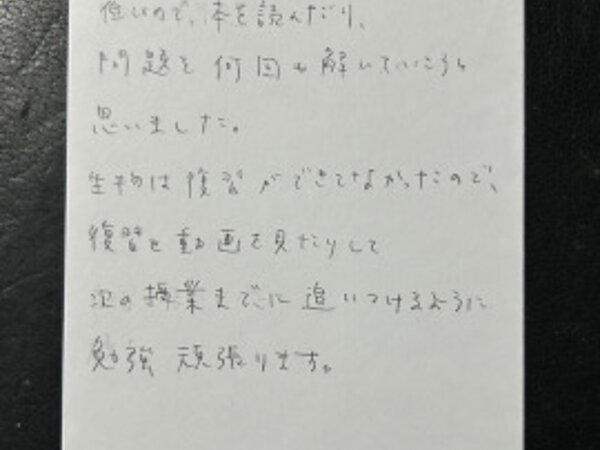 低いので、本を読んだり、
問題を何回も解いていこうと
思いました。
生物は復習ができてなかったので、
復習と動画を見たりして
次の授業までに追いつけるように
勉強頑張ります。